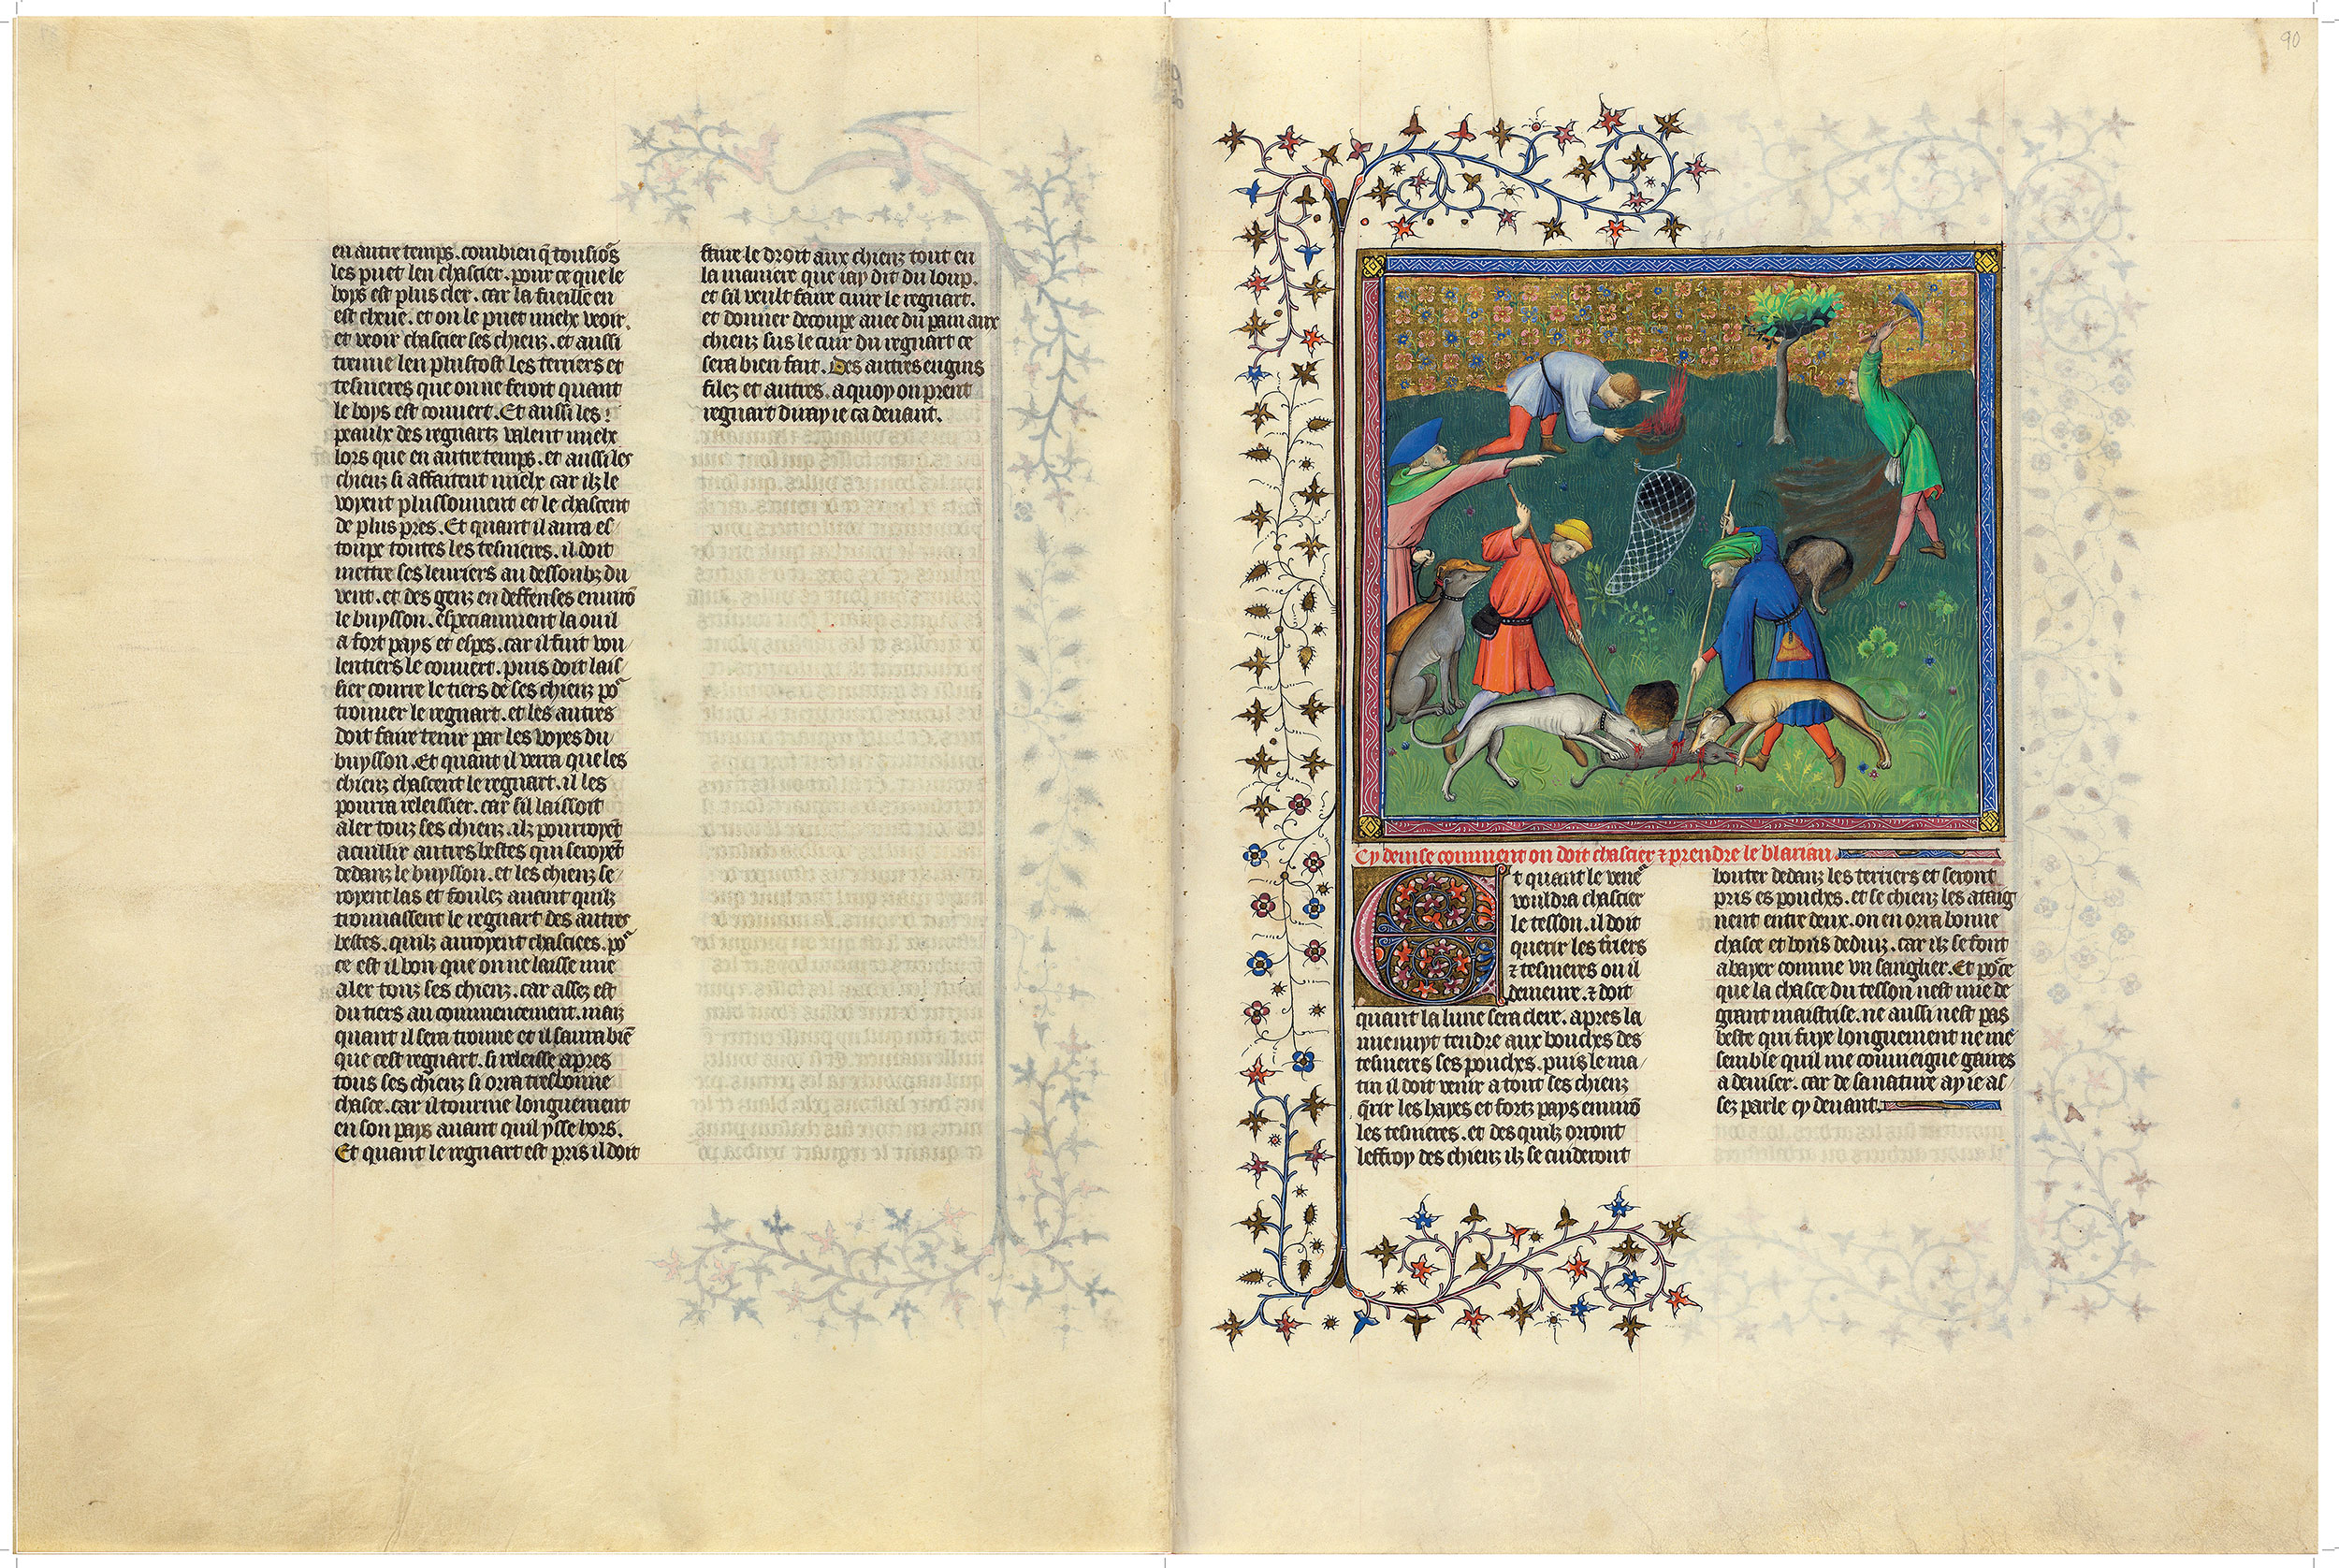 90
en autre temps. combien q̃ tousiõs
les puet len chascier. pour ce que le
boys est plus cler. car la fueille en
est cheue. et on le puet mielx veoir.
et veoir chascier ses chiens. et aussi
treuue len plustost les terriers et
tesnieres que on ne feroit quant
le boys est couuert. Et aussi les
peaulx des regnartz valent mielx
lors que en autre temps. et aussi les
chienz si affaitent mielx car ilz le
voyent plussouuent et le chascent
de plus pres. Et quant il aura es/
toupe toutes les tesnieres. il doit
mettre ses leuriers au dessoubz du
vent. et des genz en deffenses enuirõ
le buysson. especiaument la ou il
a fort pays et espes. car il fuit vou/
lentiers le couuert. puis doit lais/
sier courre le tiers de ses chienz po͛
trouuer le regnart. et les autres
doit faire tenir par les voyes du
buysson. Et quant il verra que les
chienz chascent le regnart. il les
pourra releissier. car sil laissoit
aler touz ses chienz. ilz pourroyẽt
acuillir autres bestes qui seroyẽt
dedanz le buysson. et les chienz se/
royent las et foulez auant quilz
trouuassent le regnart des autres
bestes. quilz auroyent chasciees. po͛
ce est il bon que on ne laisse mie
aler touz ses chienz. car assez est
du tiers au commencement. maiz
quant il sera trouue et il saura biẽ
que cest regnart. si releisse apres
tous ses chienz si orra tresbonne
chasce. car il tourne longuement
en son pays auant quil ysse hors.
Et quant le regnart est pris il doit
faire le droit aux chienz tout en
la maniere que iay dit du loup.
et sil veult faire cuire le regnart.
et donner decoupe auec du pain aux
chienz sus le cuir du regnart ce
sera bien fait. Des autres engins
filez et autres. a quoy on prent
regnart diray ie ca deuant.
Cy deuise comment on doit chascier ⁊ prendre le blariau.
Et quant le vene͛
vouldra chascier
le tesson. il doit
querir les t̃riers
⁊ tesnieres ou il
demeure. ⁊ doit
quant la lune sera clere. apres la
mienuyt tendre aux bouches des
tesnieres ses pouches. puis le ma/
tin il doit venir a tout ses chienz
q̃rir les hayes et fortz pays enuirõ
les tesnieres. et des quilz orront
leffroy des chienz ilz se cuideront
bouter dedanz les terriers et seront
pris es pouches. et se chienz les ataig
nent entre deux. on en orra bonne
chasce et bons deduiz. car ilz se font
abayer comme vn sanglier. Et po͛ ce
que la chasce du tesson nest mie de
grant maistrise. ne aussi nest pas
beste qui fuye longuement ne me
semble quil me conuiegne gaires
a deuiser. car de sa nature ay ie as/
sez parle cy deuant.